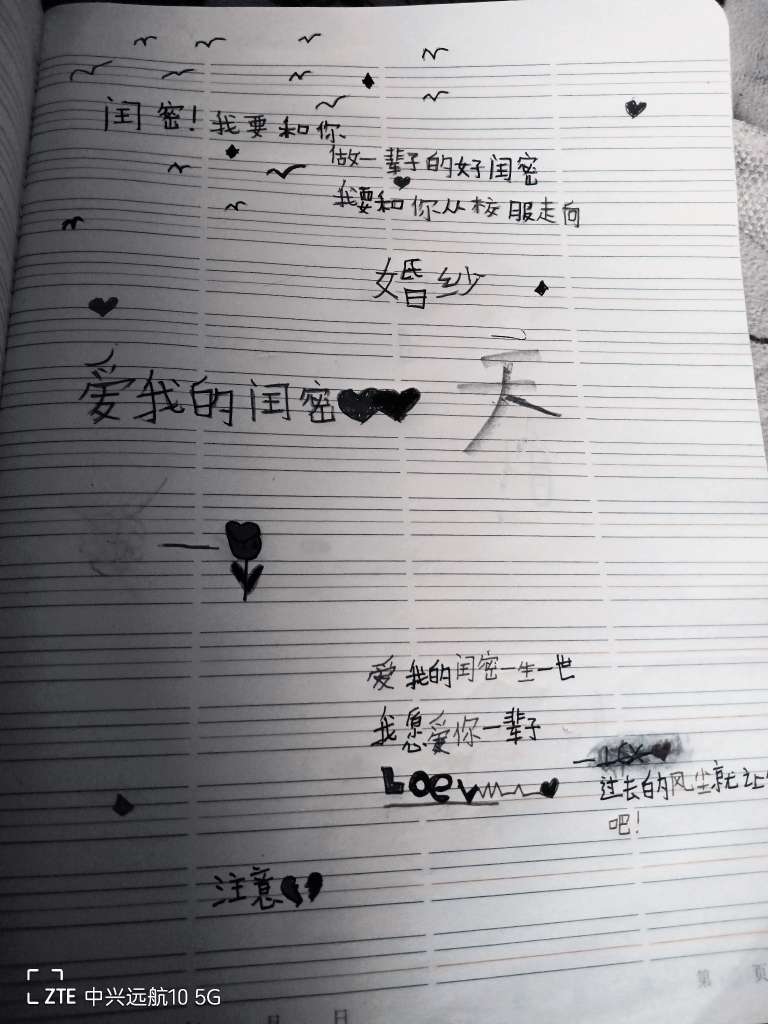 闺密！我要和你
做一辈子的好闺密
我要和你从校服走向
婚纱
爱我的闺密
天
爱我的闺密一生一世
我愿爱你一辈子
Loev
过去的风尘就让
吧！
注意
第 页
月 日
ZTE 中兴远航10 5G